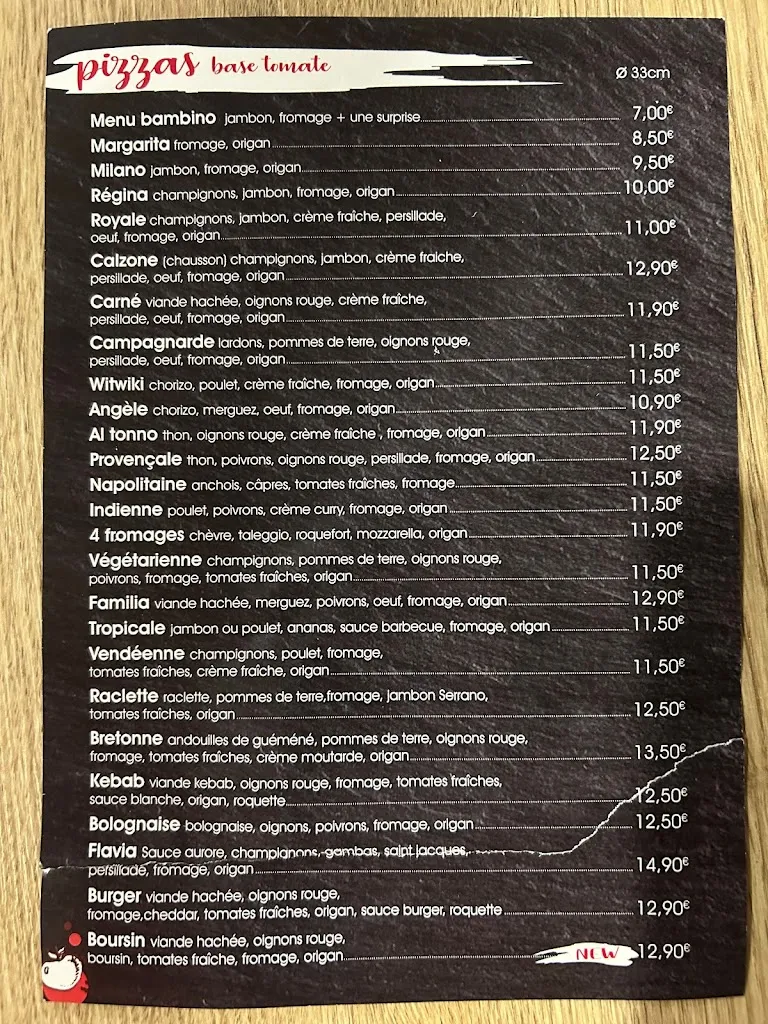 pizzas base tomate Ø 33cm
Menu bambino jambon, fromage + une surprise 7,00€
Margarita fromage, origan 8,50€
Milano jambon, fromage, origan 9,50€
Régina champignons, jambon, fromage, origan 10,00€
Royale champignons, jambon, crème fraîche, persillade,
oeuf, fromage, origan 11,00€
Calzone (chausson) champignons, jambon, crème fraîche,
persillade, oeuf, fromage, origan 12,90€
Carné viande hachée, oignons rouge, crème fraîche,
persillade, oeuf, fromage, origan 11,90€
Campagnarde lardons, pommes de terre, oignons rouge,
persillade, oeuf, fromage, origan 11,50€
Witwiki chorizo, poulet, crème fraîche, fromage, origan 11,50€
Angèle chorizo, merguez, oeuf, fromage, origan 10,90€
Al tonno thon, oignons rouge, crème fraîche , fromage, origan 11,90€
Provençale thon, poivrons, oignons rouge, persillade, fromage, origan 12,50€
Napolitaine anchois, câpres, tomates fraîches, fromage 11,50€
Indienne poulet, poivrons, crème curry, fromage, origan 11,50€
4 fromages chèvre, taleggio, roquefort, mozzarella, origan 11,90€
Végétarienne champignons, pommes de terre, oignons rouge,
poivrons, fromage, tomates fraîches, origan 11,50€
Familia viande hachée, merguez, poivrons, oeuf, fromage, origan 12,90€
Tropicale jambon ou poulet, ananas, sauce barbecue, fromage, origan 11,50€
Vendéenne champignons, poulet, fromage,
tomates fraîches, crème fraîche, origan 11,50€
Raclette raclette, pommes de terre,fromage, jambon Serrano,
tomates fraîches, origan 12,50€
Bretonne andouilles de guéméné, pommes de terre, oignons rouge,
fromage, tomates fraîches, crème moutarde, origan 13,50€
Kebab viande kebab, oignons rouge, fromage, tomates fraîches,
sauce blanche, origan, roquette 12,50€
Bolognaise bolognaise, oignons, poivrons, fromage, origan 12,50€
Flavia Sauce aurore, champignons, gambas, saint jacques,
persillade, fromage, origan 14,90€
Burger viande hachée, oignons rouge,
fromage,cheddar, tomates fraîches, origan, sauce burger, roquette 12,90€
Boursin viande hachée, oignons rouge,
boursin, tomates fraîche, fromage, origan NEW 12,90€